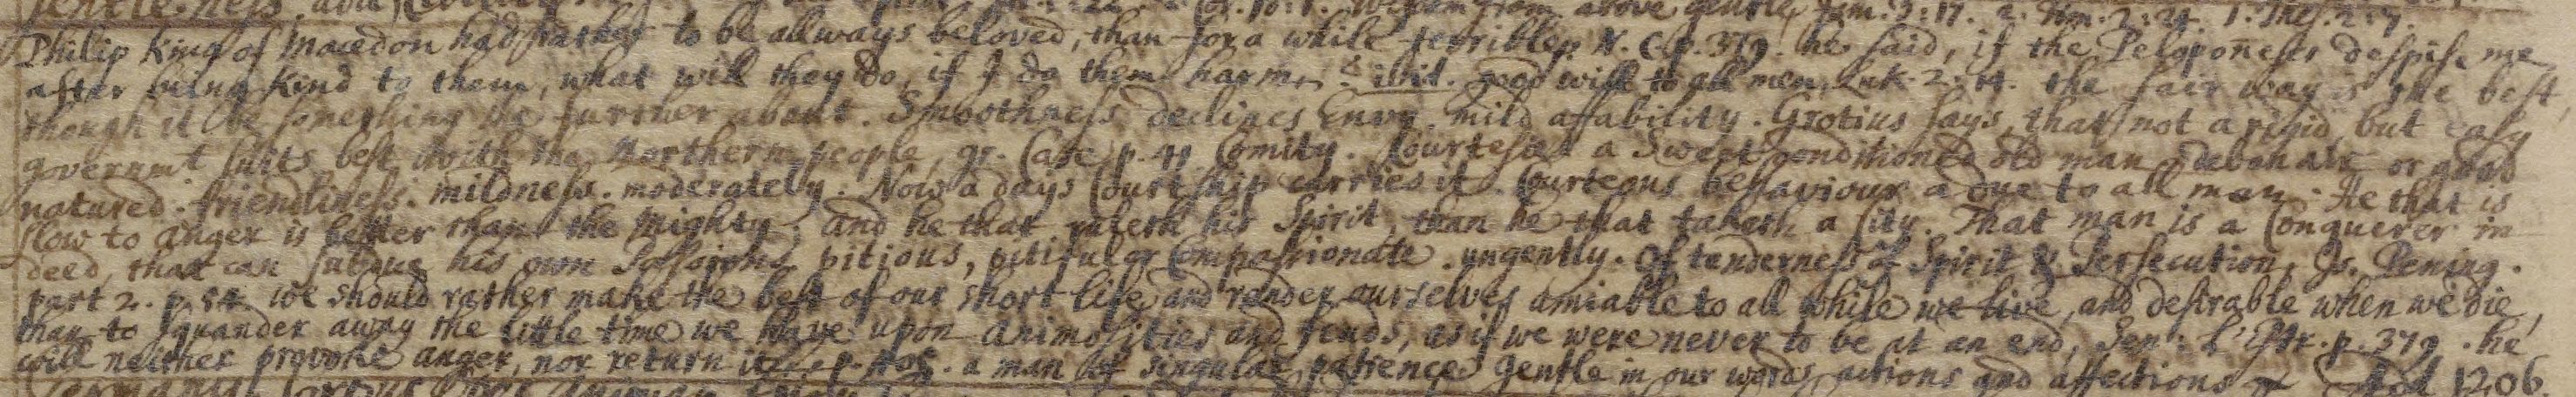 Gentleness, Wisdom from above gentle, Jam. 3:17. 2. Tim. 2:24. 1. Thes. 2:7.
Philip King of Macedon had rather to be allways beloved, than for a while terrible, N. C. p. 379. he said, if the Peloponeses despise me
after being kind to them, what will they do, if I do them harm? ibid. good will to all men, Luk. 2:14. the fair way is the best,
though it be something the further about. Smoothness declines Envy. mild affability. Grotius says, that not a rigid, but easy
governmt suits best with the Northern people, gr. Cate) p. 41 Comity. Courtesie. a Sweet conditioned old man. debonair or good
natured. friendliness. mildness. moderately. Now a days Courtship carries it. Courteous behaviour a due to all men. He that is
slow to anger is better than the Mighty; and he that ruleth his Spirit, than he that taketh a City. That man is a Conquerer in
deed, that can subdue his own Passions. pitious, pitiful or Compassionate. ungently. Of tenderness of Spirit & Persecution, Is. Pening.
part 2. p. 54. we should rather make the best of our short life, and render ourselves amiable to all while we live, and desirable when we die,
than to squander away the little time we have upon animosities and feuds, as if we were never to be at an end, Sen: L'Str. p. 379. he
will neither provoke anger, nor return it p. 405. a man of singular patience. gentle in our words, actions and affections 1206.